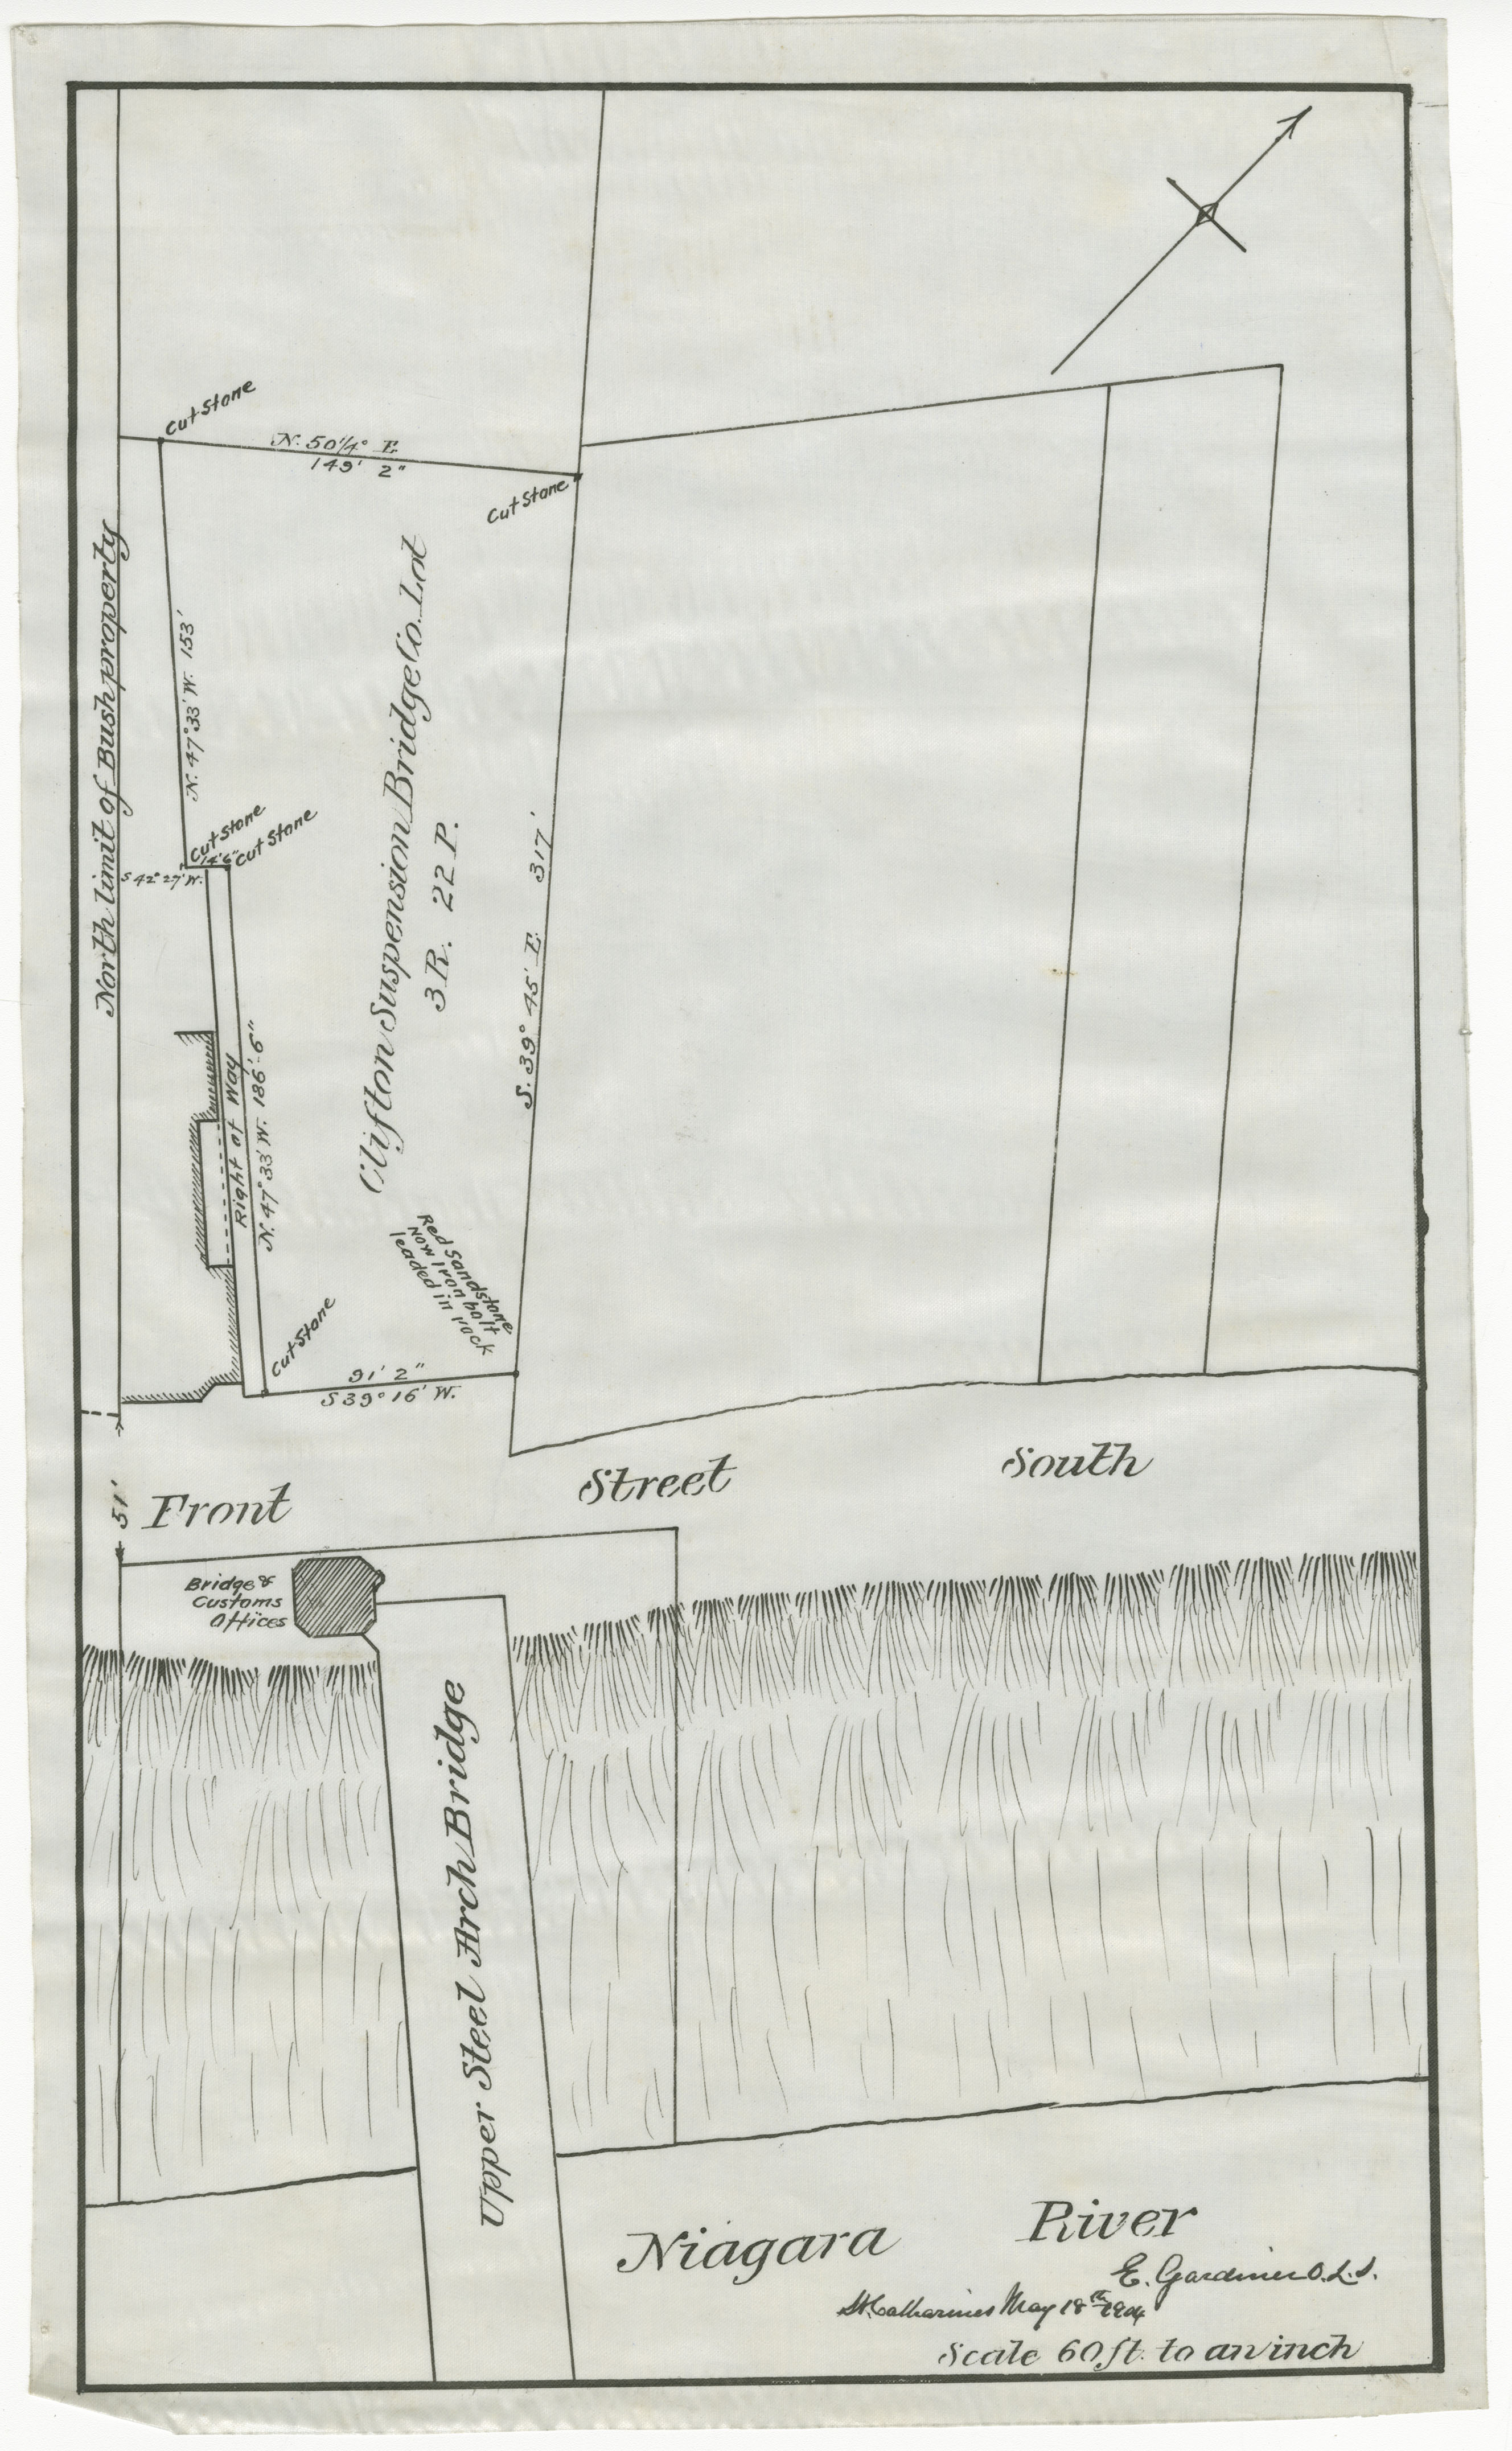 Cut Stone
N. 50 1/4° E
149' 2"
Cut Stone
North limit of Bush property
N. 47° 33' W. 153'
Clifton Suspension Bridge Co. Lot
3 R. 22 P.
Cut Stone
14' 6"
Cut Stone
S 42° 27' W.
S. 39° 45' E 317'
Right of Way
N. 47° 33' W. 186'-6"
Red Sandstone
Now Iron bolt
leaded in rock
Cut Stone
91' 2"
S 39° 16' W.
51'
Front Street South
Bridge &
Customs
Offices
Upper Steel Arch Bridge
Niagara River
E. Gardiner O.L.S.
St. Catharines May 18th 1904
Scale 60 ft. to an inch